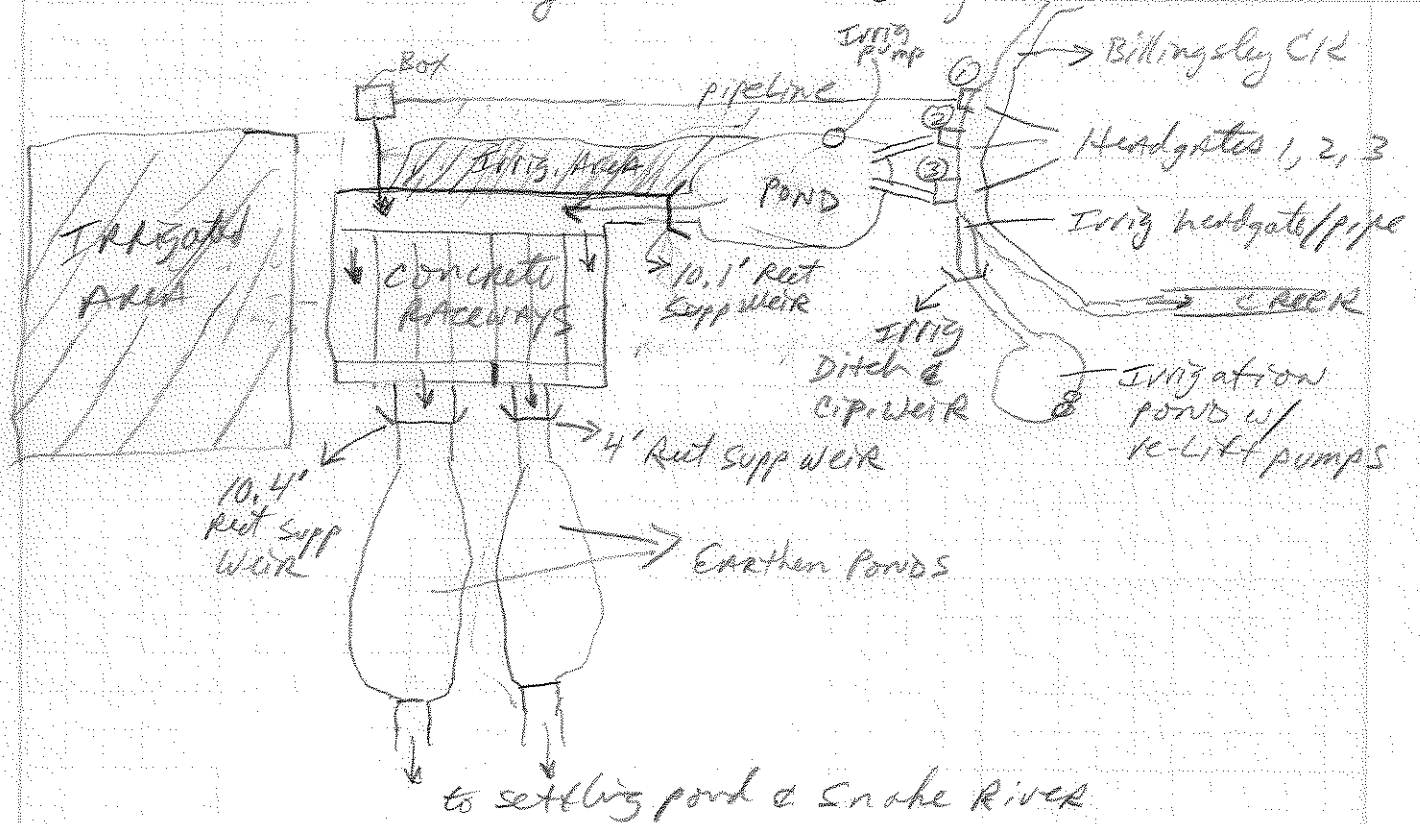 Irrig
pump
Billingsley Crk
Box
pipeline
1
2
3
Headgates 1, 2, 3
Irrig. Area
POND
Irrigated
AREA
Irrig headgate/pipe
CONCRETE
RACEWAYS
10.1' Rect
Supp Weir
CREEK
Irrig
Ditch &
Cip. Weir
Irrigation
POND w/
re-Lift pumps
4' Rect Supp Weir
10.4'
Rect Supp
Weir
EARthen PONDS
to settling pond & Snake River